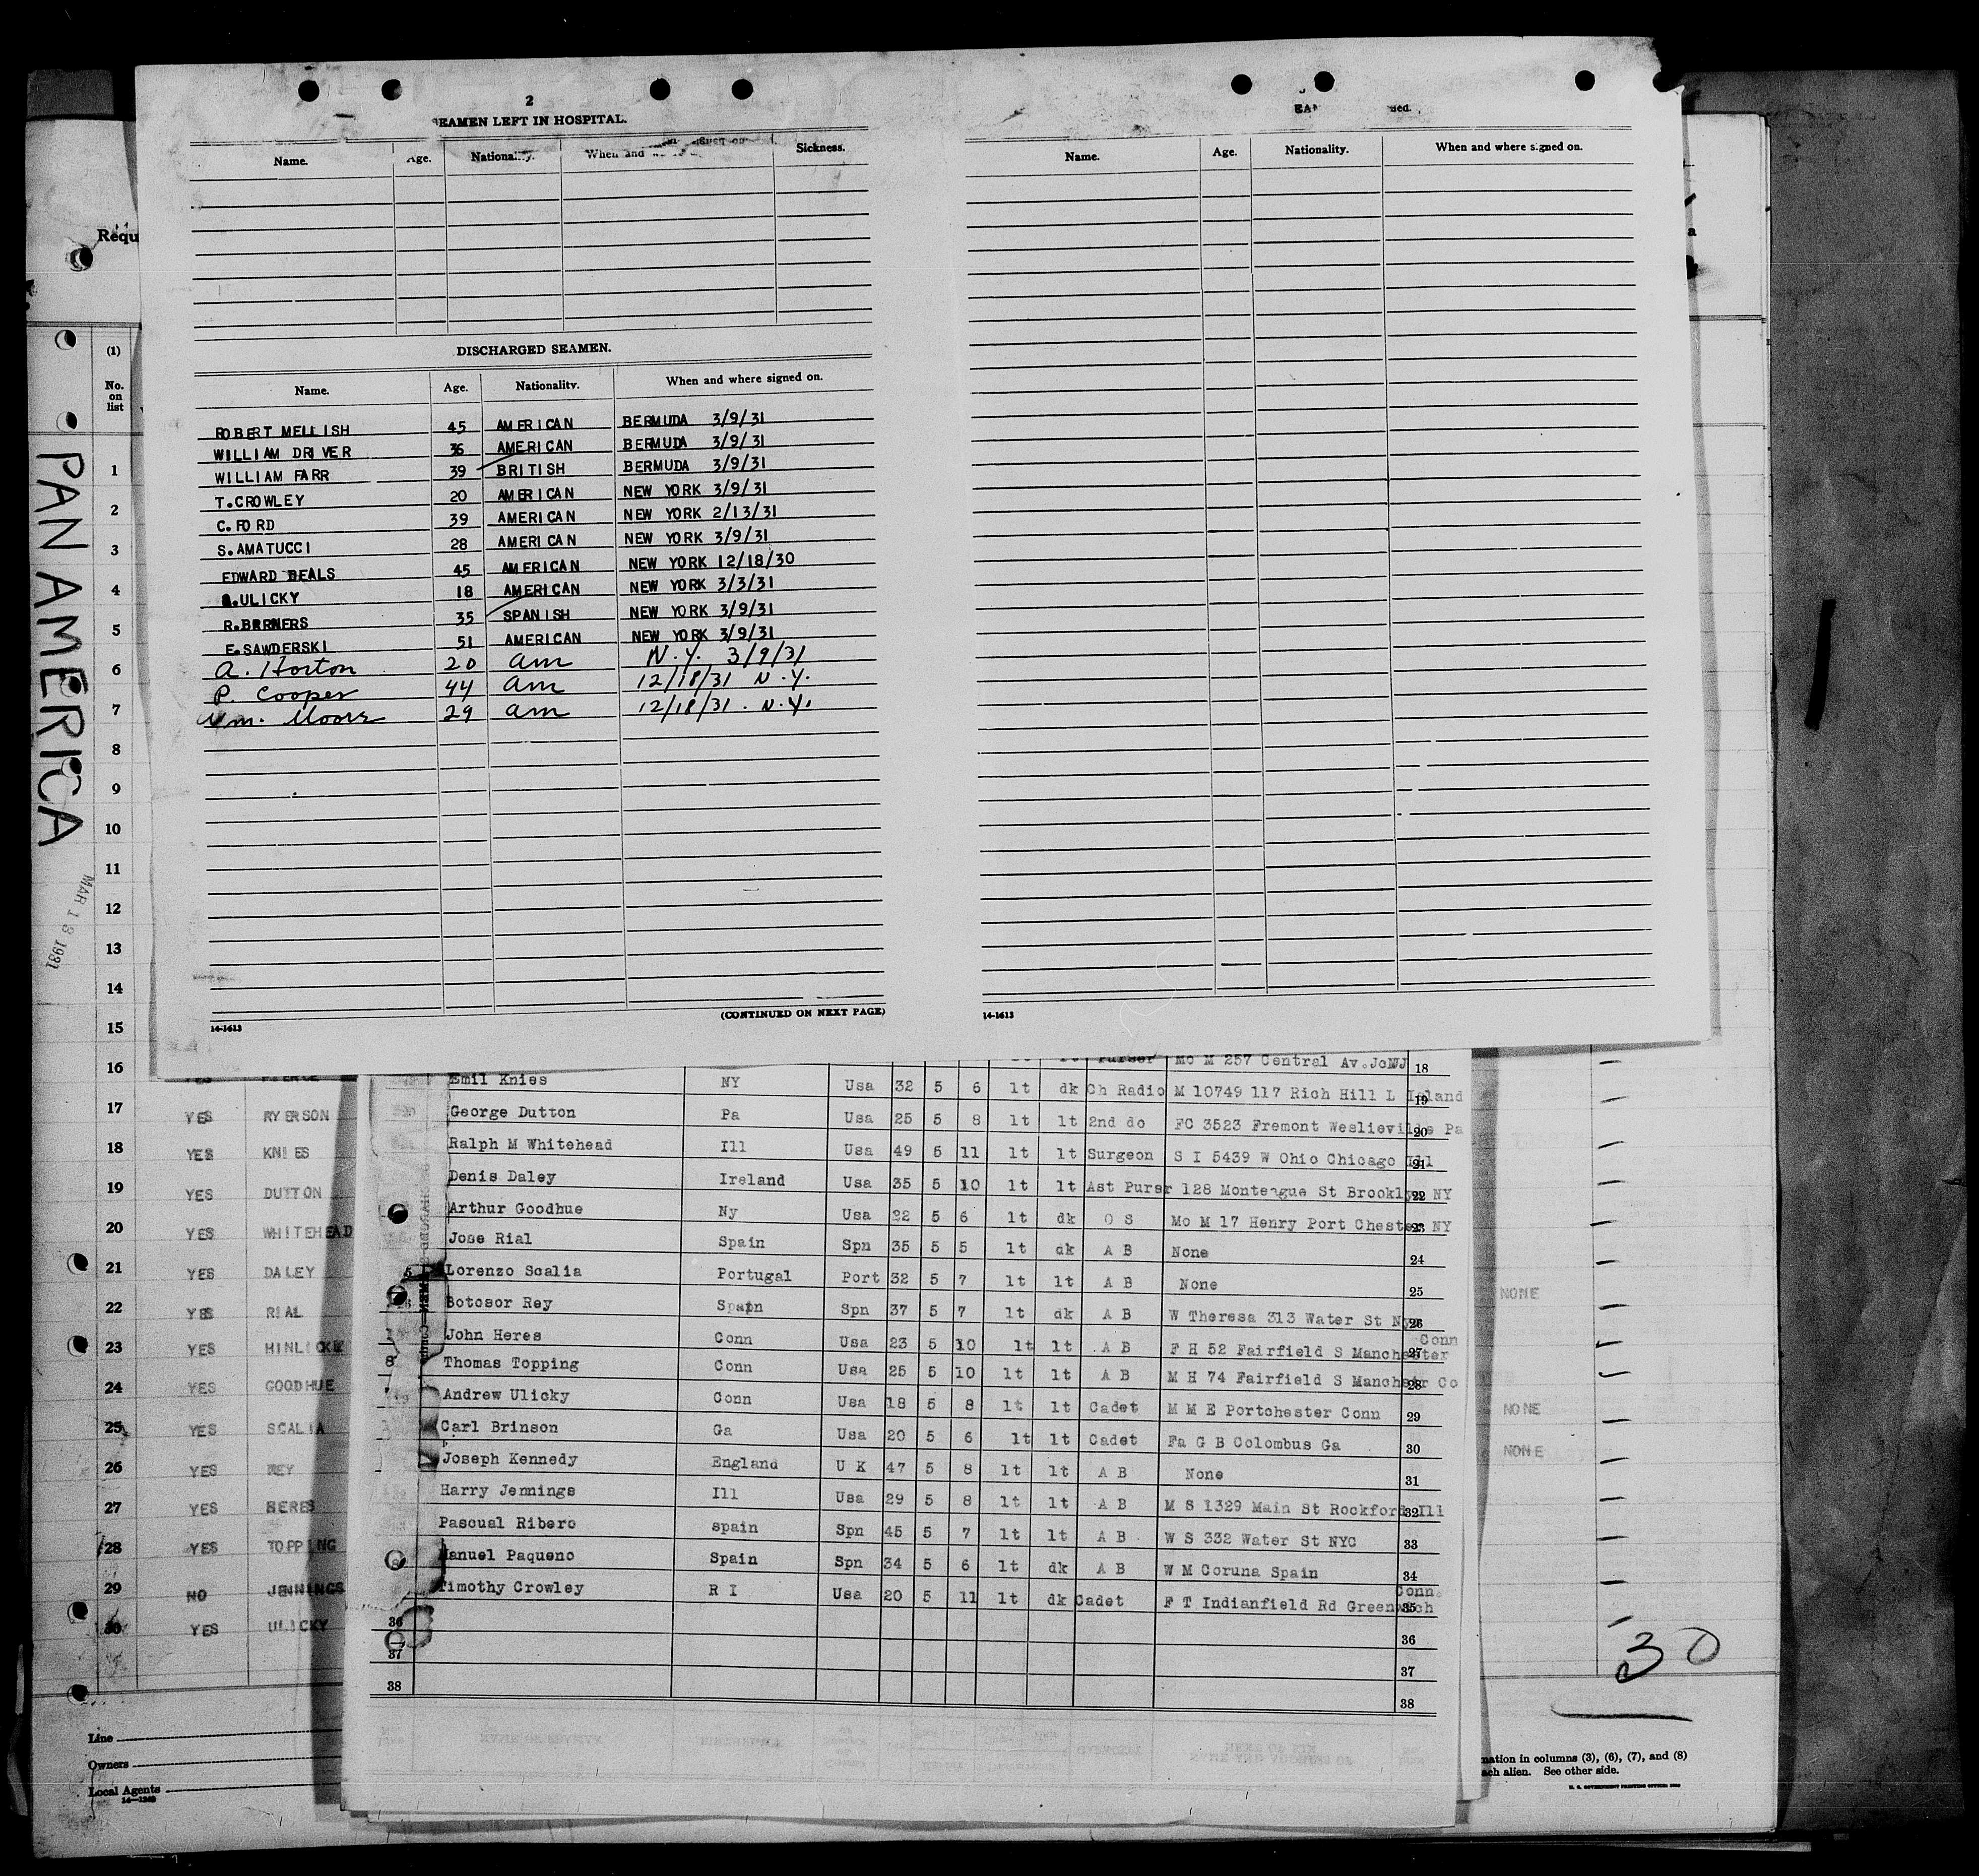 2
SEAMEN LEFT IN HOSPITAL.
Name. Age. Nationality. When and Sickness.
DISCHARGED SEAMEN.
Name. Age. Nationality. When and where signed on.
ROBERT MELLISH 45 AMERICAN BERMUDA 3/9/31
WILLIAM DRIVER 36 AMERICAN BERMUDA 3/9/31
WILLIAM FARR 39 BRITISH BERMUDA 3/9/31
T.CROWLEY 20 AMERICAN NEW YORK 3/9/31
C.FORD 39 AMERICAN NEW YORK 2/13/31
S.AMATUCCI 28 AMERICAN NEW YORK 3/9/31
EDWARD BEALS 45 AMERICAN NEW YORK 12/18/30
A.ULICKY 18 AMERICAN NEW YORK 3/3/31
35 SPANISH NEW YORK 3/9/31
E.SAWDERSKI 51 AMERICAN NEW YORK 3/9/31
A. Horton 20 am N.Y. 3/9/31
P. Cooper 44 am 12/18/31 N.Y.
Wm. Moore 29 am 12/18/31. N.Y.
(CONTINUED ON NEXT PAGE)
14-1613
Name. Age. Nationality. When and where signed on.
14-1613
Requ
(1)
No. on list
PAN AMERICA
MAR 13 1931
1
2
3
4
5
6
7
8
9
10
11
12
13
14
15
16 PIERCE
17 YES RYERSON
18 YES KNIES
19 YES DUTTON
20 YES WHITEHEAD
21 YES DALEY
22 YES RIAL
23 YES HINLICKY
24 YES GOODHUE
25 YES SCALIA
26 YES REY
27 YES BERES
28 YES TOPPING
29 NO JENNINGS
30 YES ULICKY
Line
Owners
Local Agents
14-1240
Purser Mo M 257 Central Av.JcNJ 18
Emil Knies NY Usa 32 5 6 lt dk Ch Radio M 10749 117 Rich Hill L Island 19
George Dutton Pa Usa 25 5 8 lt lt 2nd do FC 3523 Fremont Weslieville Pa 20
Ralph M Whitehead Ill Usa 49 5 11 lt lt Surgeon S I 5439 W Ohio Chicago Ill 21
Denis Daley Ireland Usa 35 5 10 lt lt Ast Pursr 128 Monteague St Brooklyn NY 22
Arthur Goodhue Ny Usa 22 5 6 lt dk O S Mo M 17 Henry Port Chester NY 23
Jose Rial Spain Spn 35 5 5 lt dk A B None 24
Lorenzo Scalia Portugal Port 32 5 7 lt lt A B None 25
Botosor Rey Spain Spn 37 5 7 lt dk A B W Theresa 313 Water St Ny 26
John Heres Conn Usa 23 5 10 lt lt A B F H 52 Fairfield S Manchester Conn 27
Thomas Topping Conn Usa 25 5 10 lt lt A B M H 74 Fairfield S Manchstr Co 28
Andrew Ulicky Conn Usa 18 5 8 lt lt Cadet M M E Portchester Conn 29
Carl Brinson Ga Usa 20 5 6 lt lt Cadet Fa G B Colombus Ga 30
Joseph Kennedy England U K 47 5 8 lt lt A B None 31
Harry Jennings Ill Usa 29 5 8 lt lt A B M S 1329 Main St Rockford Ill 32
Pascual Ribero spain Spn 45 5 7 lt lt A B W S 332 Water St NYC 33
Manuel Paqueno Spain Spn 34 5 6 lt dk A B W M Coruna Spain 34
Timothy Crowley R I Usa 20 5 11 lt dk Cadet F T Indianfield Rd Greenwich Conn 35
36 36
37 37
38 38
NONE
NONE
NONE
30
mation in columns (3), (6), (7), and (8)
ach alien. See other side.
U. S. GOVERNMENT PRINTING OFFICE